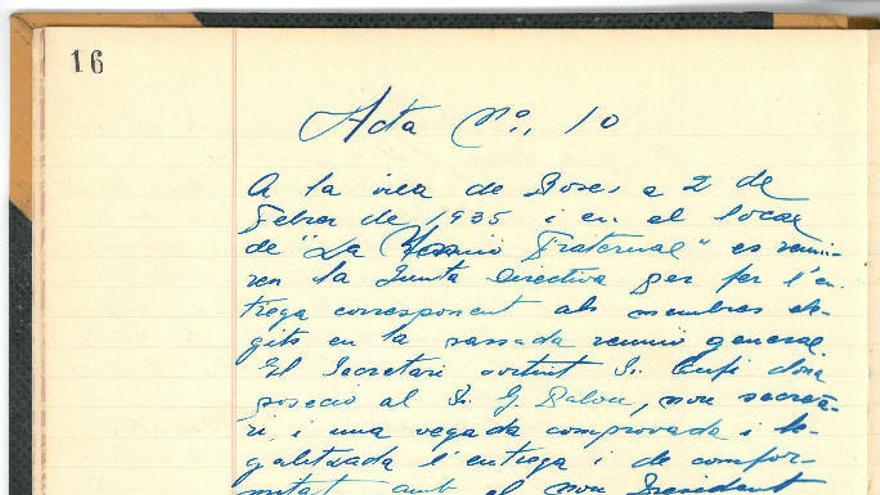 16
Acta Nº., 10
A la vila de Roses a 2 de
Febrer de 1935 i en el local
de "La Fraternal" es reuni-
ren la Junta Directiva per fer l'en
trega corresponent als membres ele-
gits en la passada reunió general.
El Secretari sortint Sr. Cufi dona
posecio al Sr. G. Palou, nou secretà-
ri, i una vegada comprovada i le-
galitzada l'entrega i de confor-
mitat amb el nou President